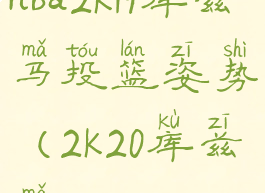 nba2k17库兹
mǎ tóu lán zī shì
马投篮姿势
kù zī
(2K20库兹
mǎ